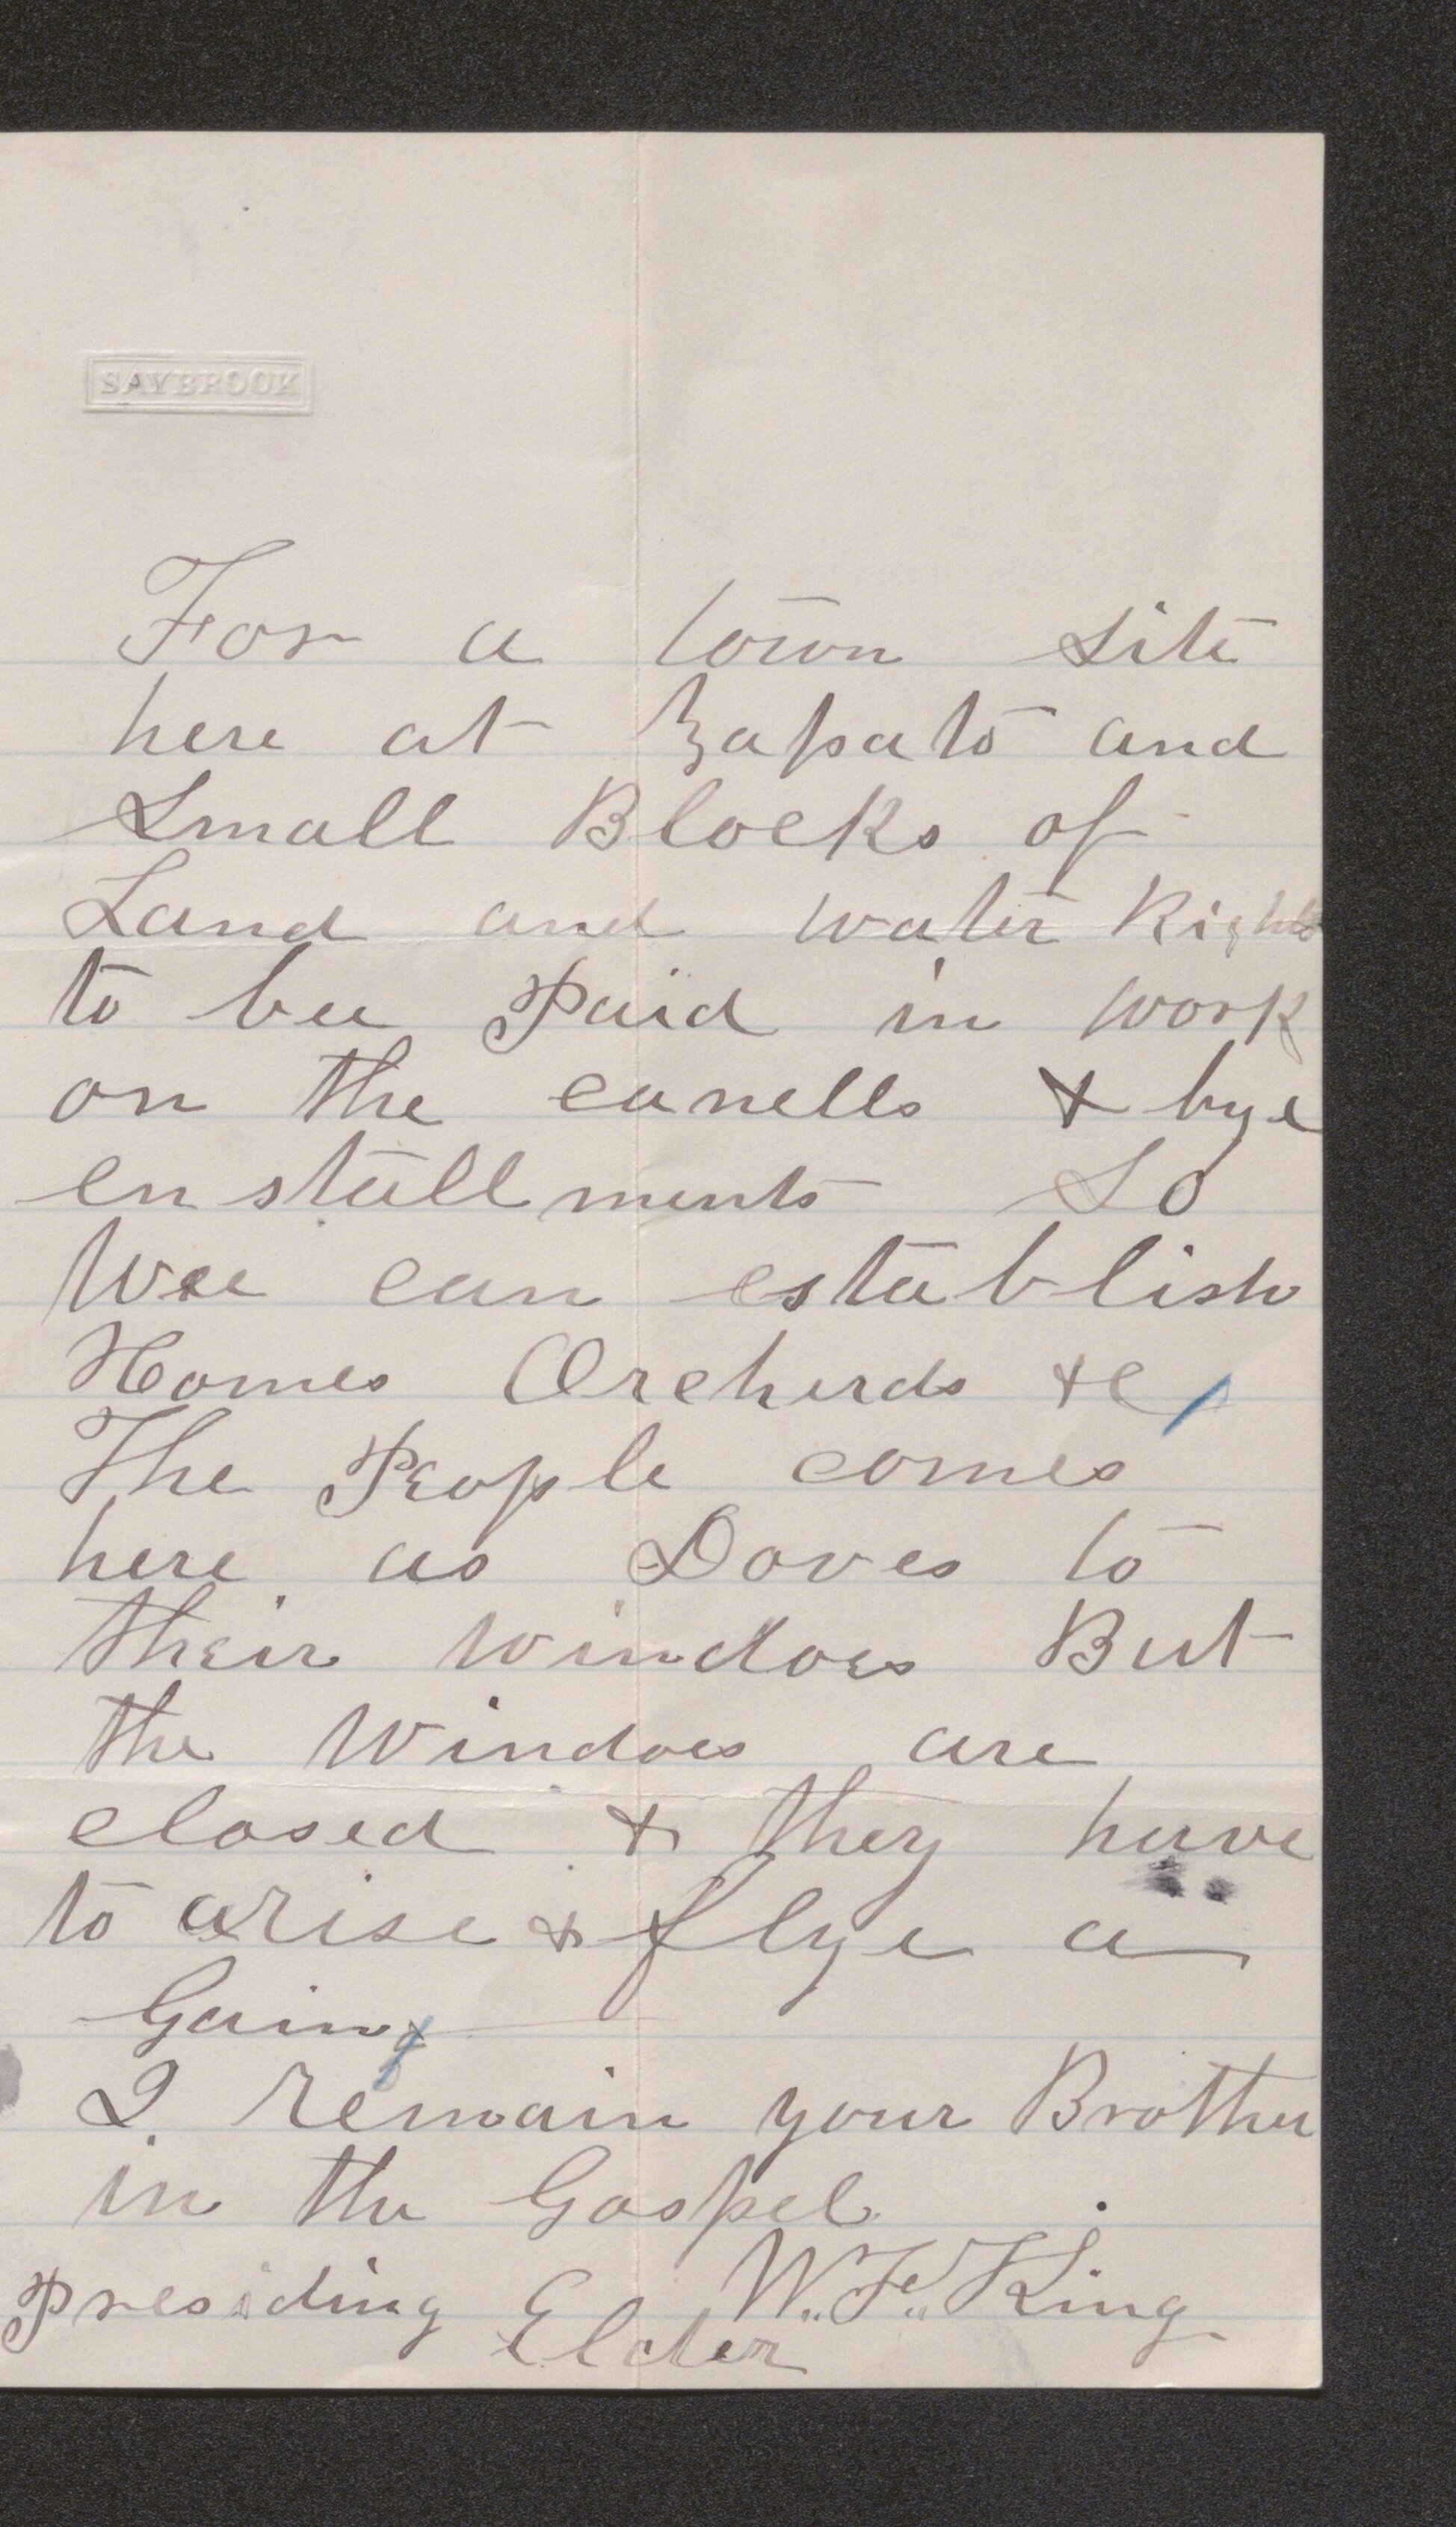 SAYBROOK
For a town site
here at Zapato and
Small Blocks of
Land and water Rights
to bee Paid in work
on the canells & bye
en stallments So
Wee can establish
Homes Orcherds &c
The People comes
here as Doves to
their windoes But
the Windoes are
closed & they have
to arise & flye a
Gain
I remain your Brother
in the Gospel
W. F. King
Presiding Elder